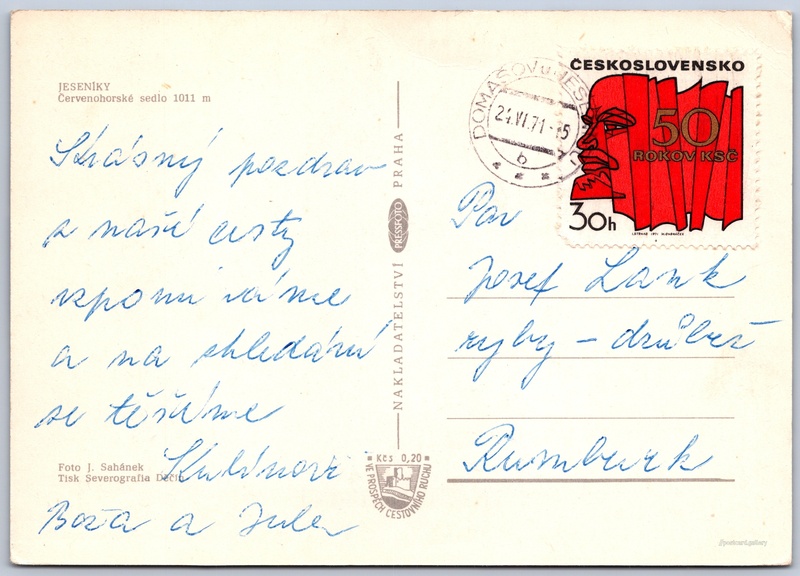 JESENÍKY
Červenohorské sedlo 1011 m
Krásný pozdrav
z naší cesty
vzpomínáme
a na shledání
se těšíme
Kulínovi
Boža a
Foto J. Sahánek
Tisk Severografia Děčín
NAKLADATELSTVÍ PRESSFOTO PRAHA
Kčs 0,20
VE PROSPĚCH CESTOVNÍHO RUCHU
DOMAŠOV u JESE
21.VI.71-15
b
ČESKOSLOVENSKO
50
ROKOV KSČ
30h
Pan
Josef Lank
ryby – drůbež
Rumburk
@postcard.gallery